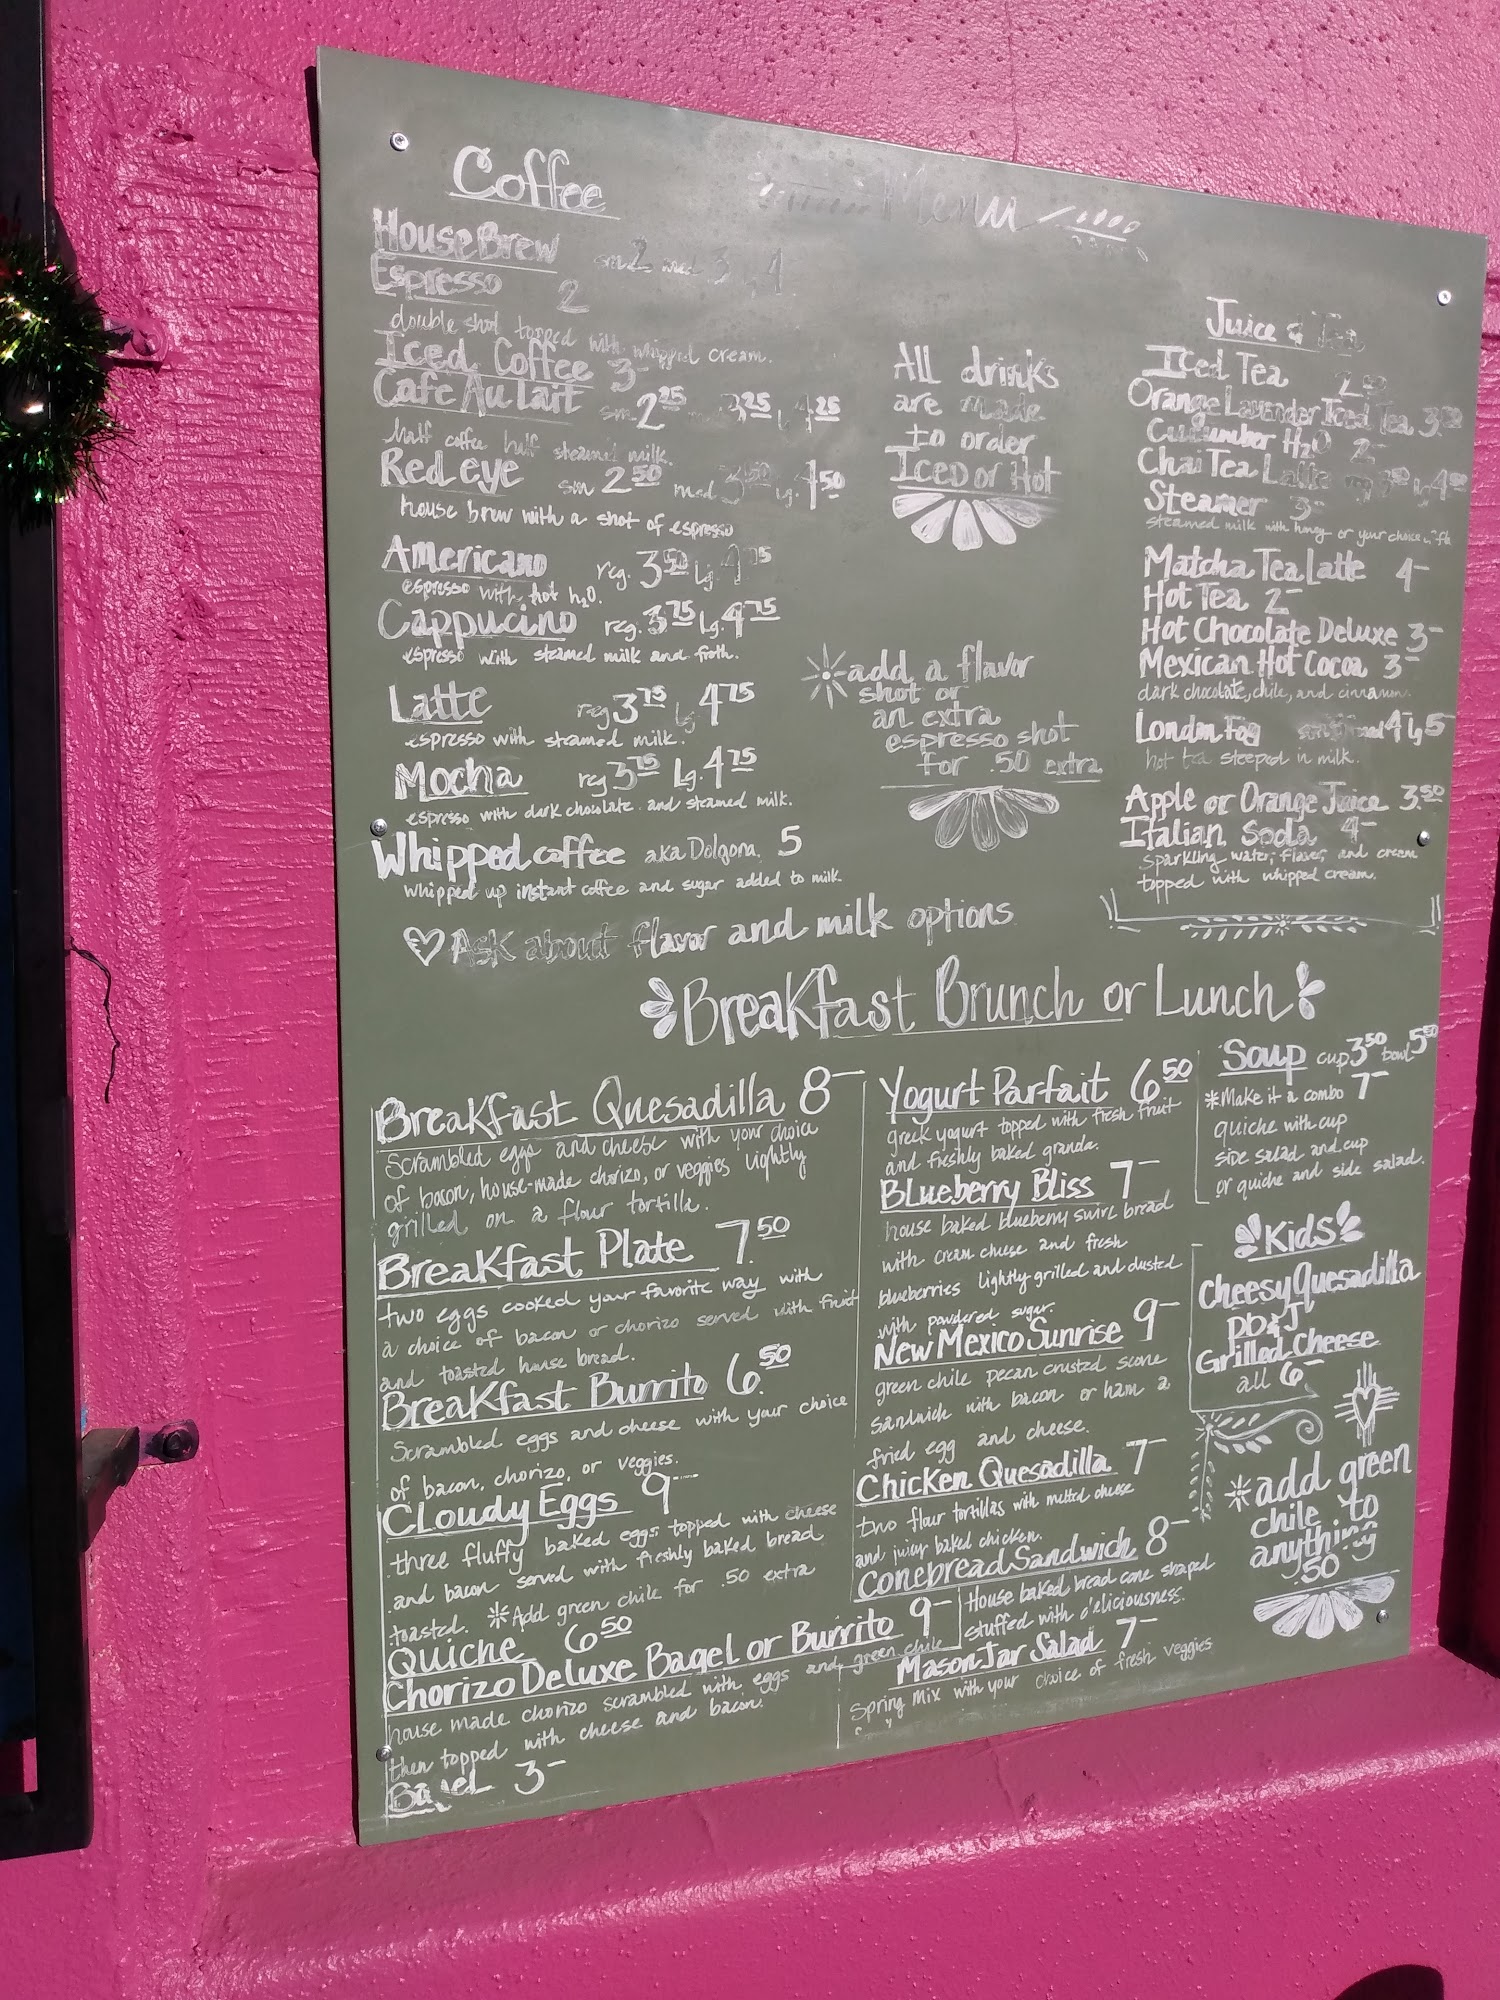 Menu
Coffee
House Brew sm 2 med 3 lg 4
Espresso 2
double shot topped with whipped cream.
Iced Coffee 3-
Cafe Au Lait sm 2.25 3.25 lg 4.25
half coffee half steamed milk.
Red eye sm 2.50 med 3.50 lg. 4.50
house brew with a shot of espresso
Americano reg. 3.50 lg 4.75
espresso with hot h2o.
Cappucino reg. 3.75 Lg. 4.75
espresso with steamed milk and froth.
Latte reg 3.75 lg 4.75
espresso with steamed milk.
Mocha reg 3.75 Lg. 4.75
espresso with dark chocolate and steamed milk.
Whipped coffee aka Dolgona. 5
whipped up instant coffee and sugar added to milk.
Ask about flavor and milk options
All drinks
are made
to order
Iced or Hot
add a flavor
shot or
an extra
espresso shot
for .50 extra
Juice & Tea
Iced Tea 2.50
Orange Lavender Iced Tea 3.50
Cucumber H2O 2-
Chai Tea Latte 3.50 lg 4.50
Steamer 3-
steamed milk with honey or your choice
Matcha Tea Latte 4-
Hot Tea 2-
Hot Chocolate Deluxe 3-
Mexican Hot Cocoa 3-
dark chocolate, chile, and cinnamon.
London Fog 4- lg 5-
hot tea steeped in milk.
Apple or Orange Juice 3.50
Italian Soda 4-
sparkling water, flavor, and cream
topped with whipped cream.
Breakfast Brunch or Lunch
Breakfast Quesadilla 8-
Scrambled eggs and cheese with your choice
of bacon, house-made chorizo, or veggies lightly
grilled on a flour tortilla.
Breakfast Plate 7.50
two eggs cooked your favorite way with
a choice of bacon or chorizo served with fruit
and toasted house bread.
Breakfast Burrito 6.50
Scrambled eggs and cheese with your choice
of bacon, chorizo, or veggies.
Cloudy Eggs 9-
three fluffy baked eggs topped with cheese
and bacon served with freshly baked bread
toasted. *Add green chile for .50 extra
Quiche 6.50
Chorizo Deluxe Bagel or Burrito 9-
house made chorizo scrambled with eggs and green chile
then topped with cheese and bacon.
Bagel 3-
Yogurt Parfait 6.50
greek yogurt topped with fresh fruit
and freshly baked granola.
Blueberry Bliss 7-
house baked blueberry swirl bread
with cream cheese and fresh
blueberries lightly grilled and dusted
with powdered sugar.
New Mexico Sunrise 9-
green chile pecan crusted scone
sandwich with bacon or ham a
fried egg and cheese.
Chicken Quesadilla 7-
two flour tortillas with melted cheese
and juicy baked chicken.
Conebread Sandwich 8-
House baked bread cone shaped
stuffed with deliciousness.
Mason Jar Salad 7-
Spring mix with your choice of fresh veggies
Soup cup 3.50 bowl 5.50
*Make it a combo 7-
quiche with cup
side salad and cup
or quiche and side salad.
Kids
Cheesy Quesadilla
pb & J
Grilled Cheese
all 6-
*add green
chile to
anything
.50